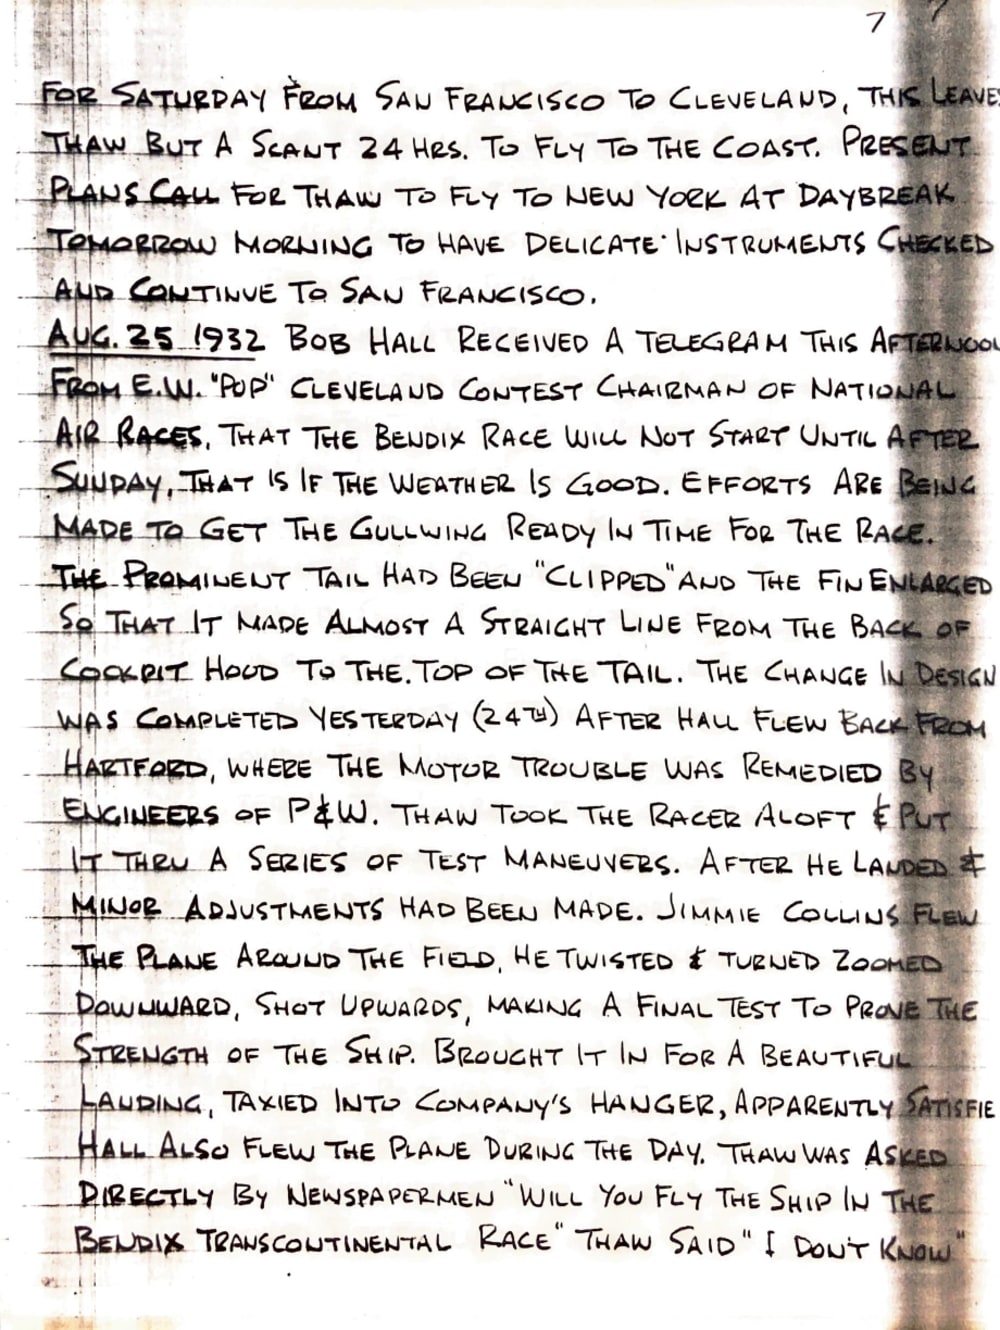 7
FOR SATURDAY FROM SAN FRANCISCO TO CLEVELAND, THIS LEAVES
THAW BUT A SCANT 24 HRS. TO FLY TO THE COAST. PRESENT
PLANS CALL FOR THAW TO FLY TO NEW YORK AT DAYBREAK
TOMORROW MORNING TO HAVE DELICATE INSTRUMENTS CHECKED
AND CONTINUE TO SAN FRANCISCO.
AUG. 25 1932 BOB HALL RECEIVED A TELEGRAM THIS AFTERNOON
FROM E.W. "POP" CLEVELAND CONTEST CHAIRMAN OF NATIONAL
AIR RACES, THAT THE BENDIX RACE WILL NOT START UNTIL AFTER
SUNDAY, THAT IS IF THE WEATHER IS GOOD. EFFORTS ARE BEING
MADE TO GET THE GULLWING READY IN TIME FOR THE RACE.
THE PROMINENT TAIL HAD BEEN "CLIPPED" AND THE FIN ENLARGED
SO THAT IT MADE ALMOST A STRAIGHT LINE FROM THE BACK OF
COCKPIT HOOD TO THE. TOP OF THE TAIL. THE CHANGE IN DESIGN
WAS COMPLETED YESTERDAY (24TH) AFTER HALL FLEW BACK FROM
HARTFORD, WHERE THE MOTOR TROUBLE WAS REMEDIED BY
ENGINEERS OF P&W. THAW TOOK THE RACER ALOFT & PUT
IT THRU A SERIES OF TEST MANEUVERS. AFTER HE LANDED &
MINOR ADJUSTMENTS HAD BEEN MADE. JIMMIE COLLINS FLEW
THE PLANE AROUND THE FIELD, HE TWISTED & TURNED ZOOMED
DOWNWARD, SHOT UPWARDS, MAKING A FINAL TEST TO PROVE THE
STRENGTH OF THE SHIP. BROUGHT IT IN FOR A BEAUTIFUL
LANDING, TAXIED INTO COMPANY'S HANGER, APPARENTLY SATISFIE
HALL ALSO FLEW THE PLANE DURING THE DAY. THAW WAS ASKED
DIRECTLY BY NEWSPAPERMEN "WILL YOU FLY THE SHIP IN THE
BENDIX TRANSCONTINENTAL RACE" THAW SAID "I DON'T KNOW"